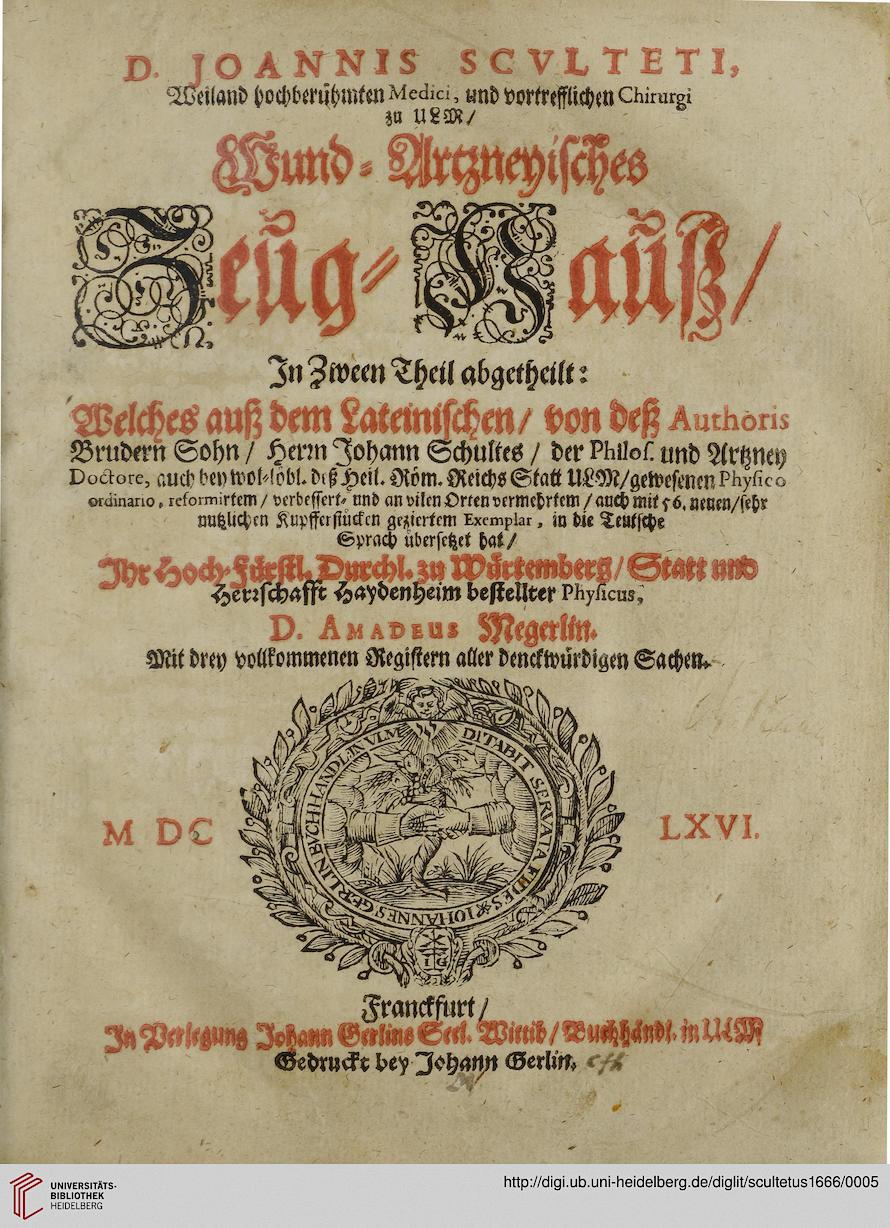 D. JOANNIS SCVLTETI,
Weiland hochberühmten Medici, und vortrefflichen Chirurgi
zu ULM/
Wund-Artzneyisches
Zeüg-Hauß/
In Zween Theil abgetheilt:
Welches auß dem Lateinischen/ von deß Authoris
Brudern Sohn/ Herrn Johann Schultes/ der Philos. und Artzney
Doctore, auch bey wol-löbl. deß Heil. Röm. Reichs Statt ULM/ gewesenen Physico
ordinario, reformirtem/ verbessert- und an vilen Orten vermehrtem/ auch mit 56. neuen/ sehr
nutzlichen Kupfferstücken geziertem Exemplar, in die Teutsche
Sprach übersetzet hat/
Ihr Hoch-Fürstl. Durchl. zu Würtemberg/ Statt und
Herrschafft Haydenheim bestellter Physicus,
D. AMADEUS Megerlin.
Mit drey vollkommenen Registern aller denckwürdigen Sachen.
DITABIT SERVATA FIDES * IOHANNES GERLIN BVCHHANDL. IN VLM
I G
M DC LXVI.
Franckfurt/
In Verlegung Johann Gerlins Seel. Wittib/ Buchhändl. in ULM
Gedruckt bey Johann Gerlin.
UNIVERSITÄTS-
BIBLIOTHEK
HEIDELBERG
http://digi.ub.uni-heidelberg.de/diglit/scultetus1666/0005